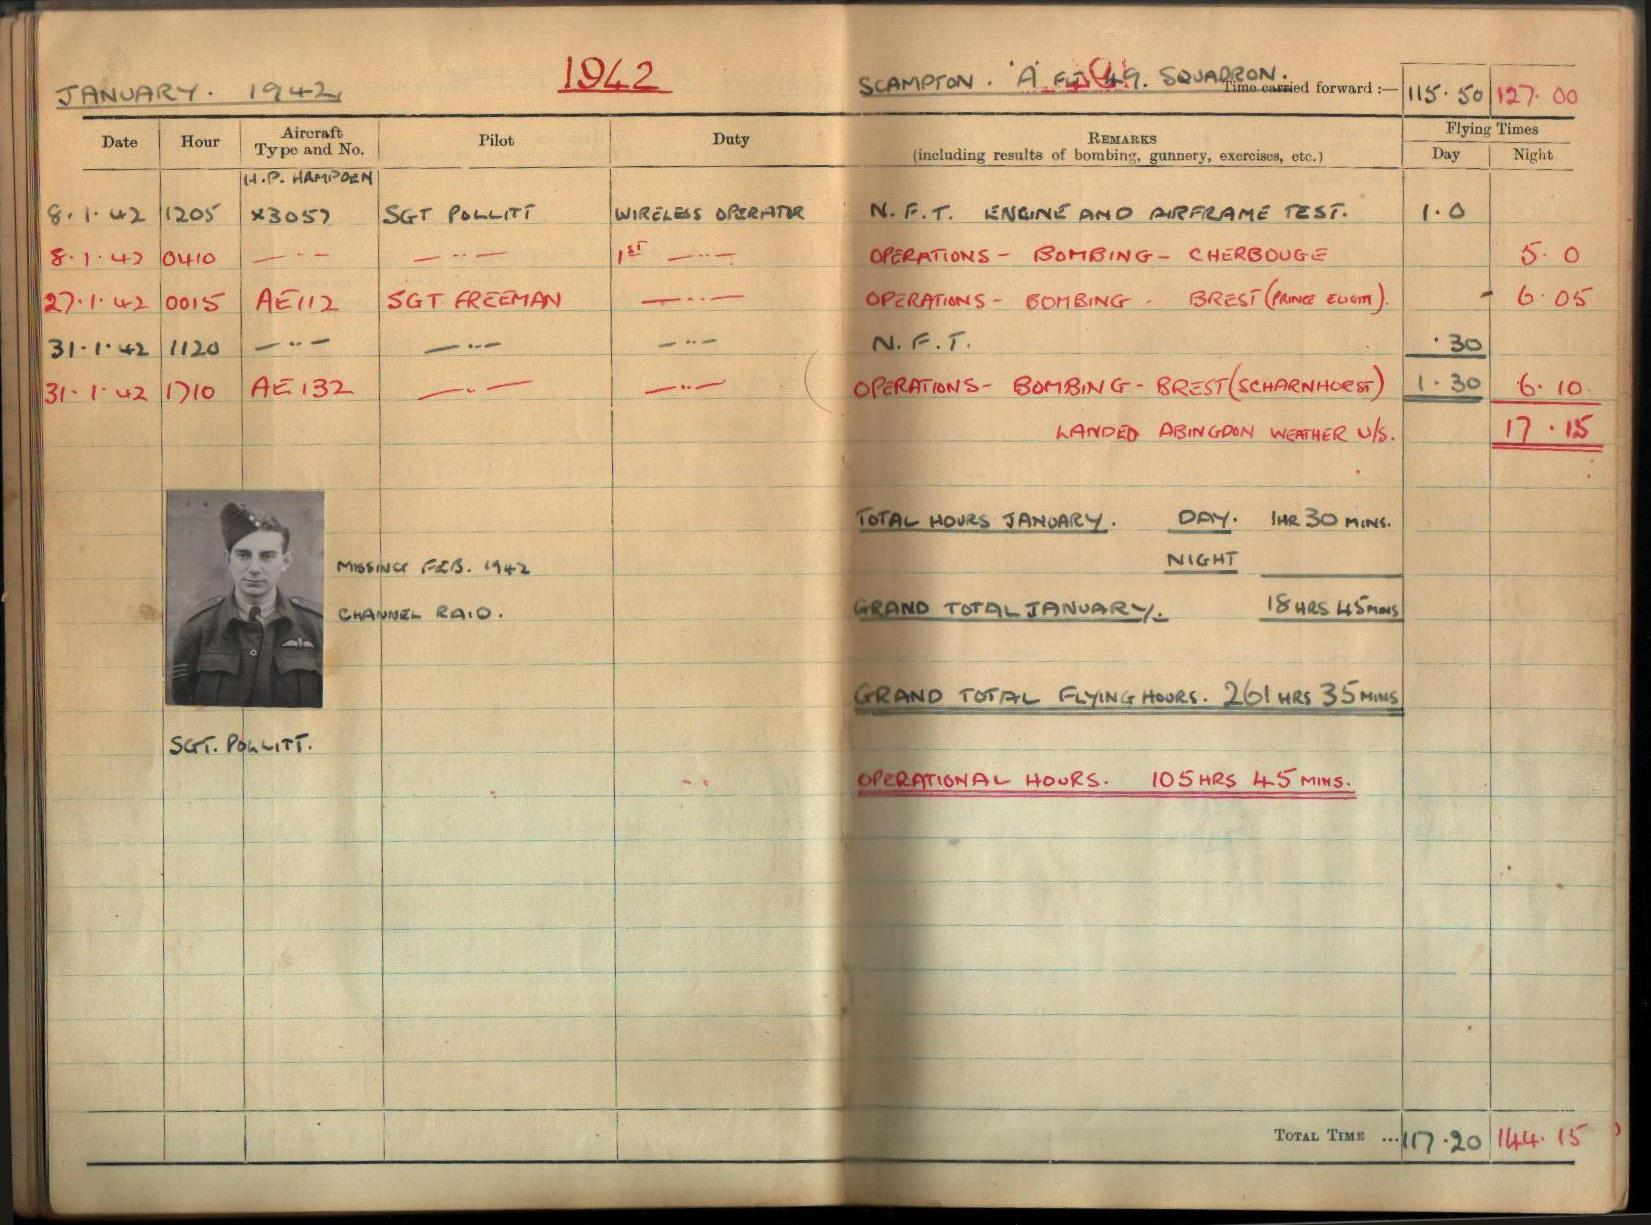 1942
JANUARY. 1942
SCAMPTON. 'A' FLT 49. SQUADRON.
Time carried forward :— 115.50 127.00
Date Hour Aircraft Type and No. Pilot Duty REMARKS (including results of bombing, gunnery, exercises, etc.) Flying Times Day Night
H.P. HAMPDEN
8.1.42 1205 X3057 SGT POLLITT WIRELESS OPERATOR N.F.T. ENGINE AND AIRFRAME TEST. 1.0
8.1.42 0410 — " — — " — 1ST — " — OPERATIONS - BOMBING - CHERBOUGE 5.0
27.1.42 0015 AE112 SGT FREEMAN — " — OPERATIONS - BOMBING - BREST (PRINCE EUGIN). - 6.05
31.1.42 1120 — " — — " — — " — N.F.T. .30
31.1.42 1710 AE132 — " — — " — OPERATIONS - BOMBING - BREST (SCHARNHORST) 1.30 6.10
LANDED ABINGDON WEATHER U/S. 17.15
TOTAL HOURS JANUARY. DAY. 1HR 30 MINS.
NIGHT
MISSING FEB. 1942
CHANNEL RAID.
GRAND TOTAL JANUARY. 18 HRS 45 MINS
GRAND TOTAL FLYING HOURS. 261 HRS 35 MINS
SGT. POLLITT.
OPERATIONAL HOURS. 105 HRS 45 MINS.
TOTAL TIME ... 117.20 144.15